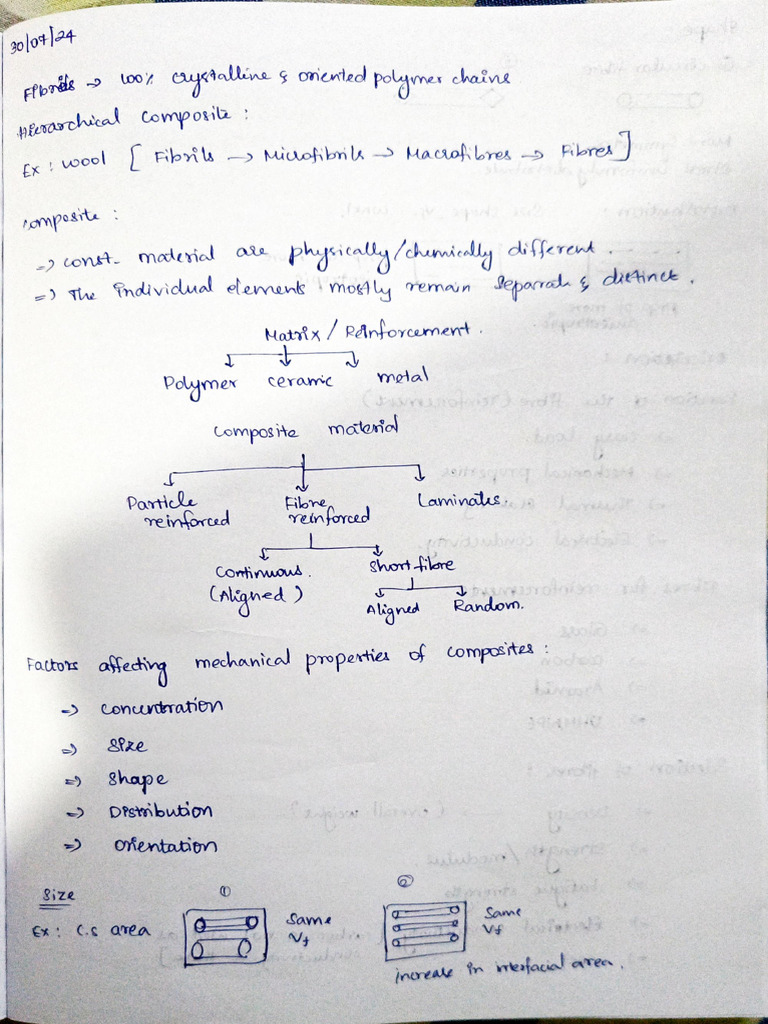 30/07/24
Fibrils → 100% crystalline & oriented polymer chains
Hierarchical composite :
Ex : wool [ Fibrils → Microfibrils → Macrofibres → Fibres ]
composite :
⇒ const. material are physically/chemically different .
⇒ The individual elements mostly remain separate & distinct .
Matrix / Reinforcement .
Polymer ceramic metal
composite material
Particle reinforced
Fibre reinforced
Laminates.
Continuous. (Aligned)
Short fibre
Aligned Random.
Factors affecting mechanical properties of composites :
⇒ concentration
⇒ size
⇒ shape
⇒ Distribution
⇒ orientation
Size
Ex : C.S area
① same Vf
② same Vf
increase in interfacial area .